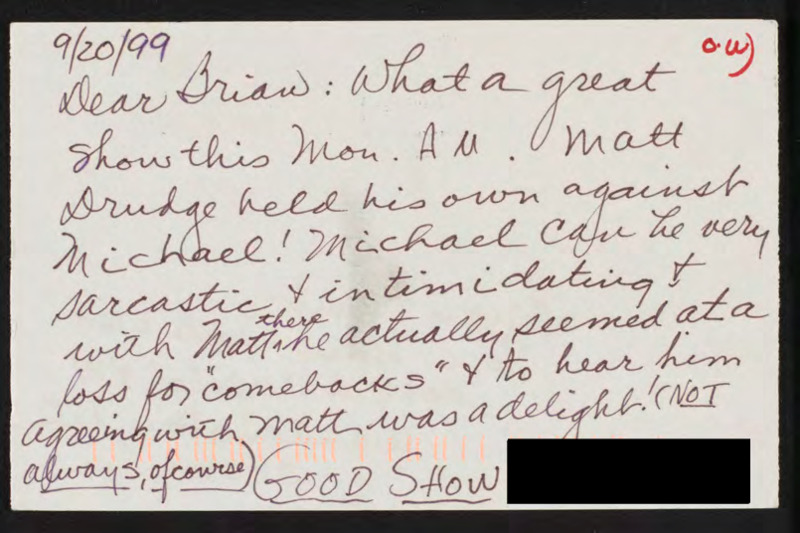 9/20/99
o.w)
Dear Brian: What a great
show this Mon. AM. Matt
Drudge held his own against
Michael! Michael can be very
sarcastic & intimidating &
with Matt there he actually seemed at a
loss for "comebacks" & to hear him
agreeing with Matt was a delight! (NOT
always, of course) GOOD SHOW